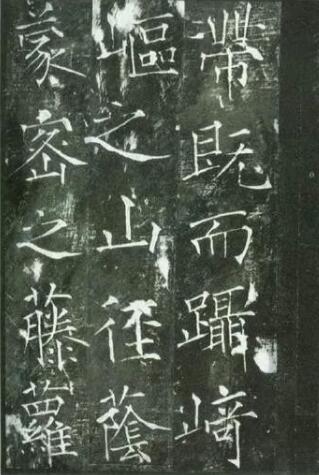 滯既而躡崎
嶇之山徑蔭
蒙密之藤蘿